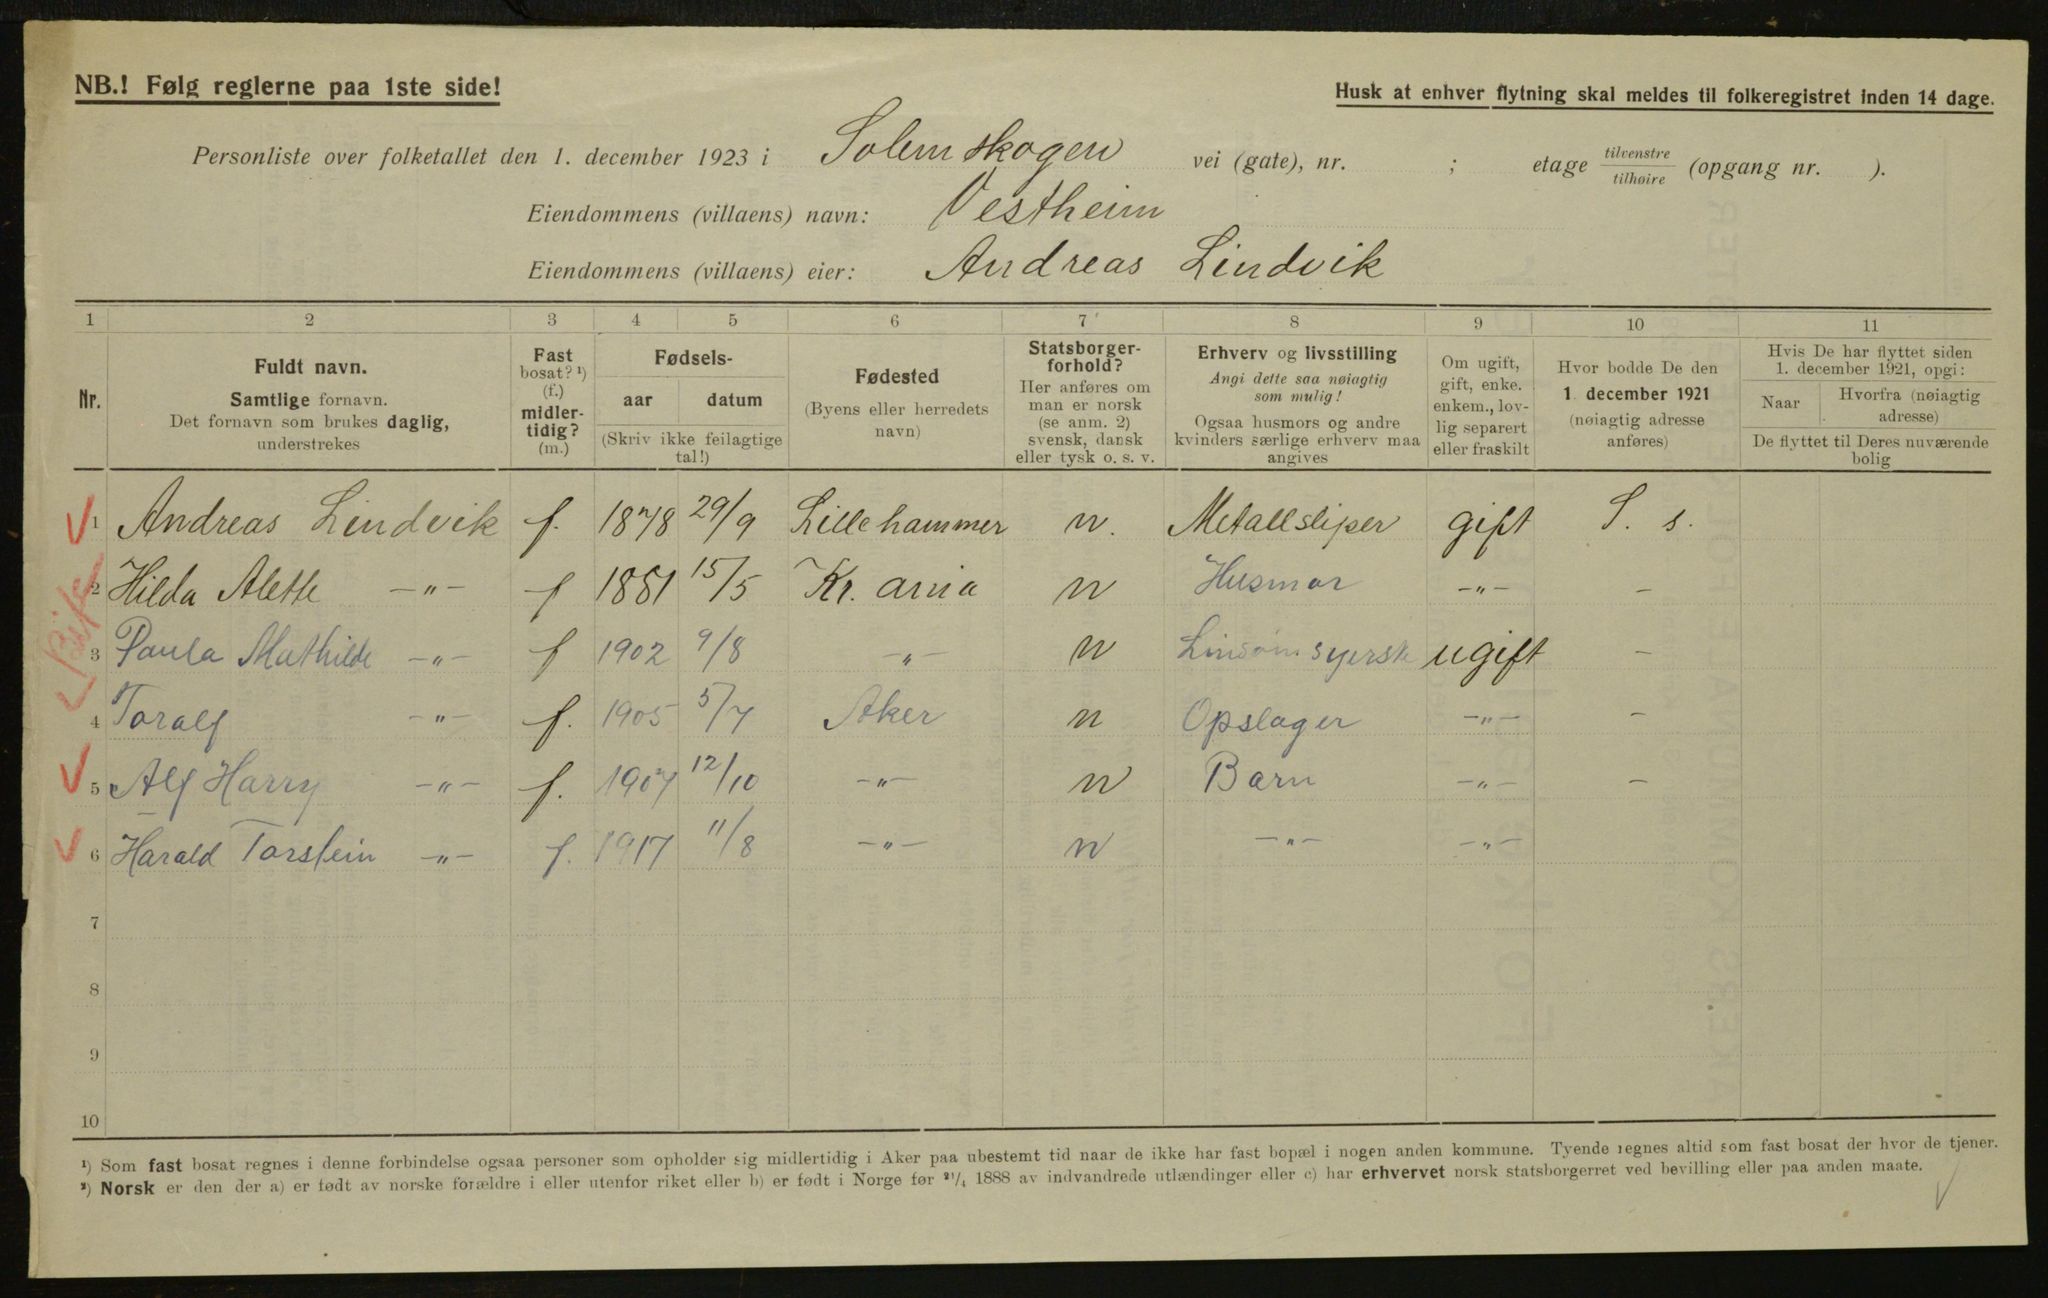 NB.! Følg reglerne paa 1ste side!
Husk at enhver flytning skal meldes til folkeregistret inden 14 dage.
Personliste over folketallet den 1. december 1923 i Solemskogen vei (gate), nr. ; etage tilvenstre/tilhøire (opgang nr. ).
Eiendommens (villaens) navn: Vestheim
Eiendommens (villaens) eier: Andreas Lindvik
1 2 3 4 5 6 7 8 9 10 11
Nr.
Fuldt navn.
Samtlige fornavn.
Det fornavn som brukes daglig,
understrekes
Fast
bosat? ¹)
(f.)
midler-
tidig?
(m.)
Fødsels-
aar datum
(Skriv ikke feilagtige
tal!)
Fødested
(Byens eller herredets
navn)
Statsborger-
forhold?
Her anføres om
man er norsk
(se anm. 2)
svensk, dansk
eller tysk o. s. v.
Erhverv og livsstilling
Angi dette saa nøiagtig
som mulig!
Ogsaa husmors og andre
kvinders særlige erhverv maa
angives
Om ugift,
gift, enke.
enkem., lov-
lig separert
eller fraskilt
Hvor bodde De den
1 december 1921
(nøiagtig adresse
anføres)
Hvis De har flyttet siden
1. december 1921, opgi:
Naar Hvorfra (nøiagtig
adresse)
De flyttet til Deres nuværende
bolig
1 Andreas Lindvik f. 1878 29/9 Lillehammer n. Metallsliper gift S. s.
2 Hilda Alette -„- f 1881 15/5 Kr.ania n Husmor -„- -
3 Paula Mathilde -„- f 1902 9/8 -„- n syersk ugift -
4 Toralf -„- f. 1905 5/7 Aker n Opslager -„- -
5 Alf Harry -„- f. 1907 12/10 -„- n Barn -„- -
6 Harald Torstein -„- f. 1917 11/8 -„- n -„- -„-
7
8
9
10
¹) Som fast bosat regnes i denne forbindelse ogsaa personer som opholder sig midlertidig i Aker paa ubestemt tid naar de ikke har fast bopæl i nogen anden kommune. Tyende regnes altid som fast bosat der hvor de tjener.
²) Norsk er den der a) er født av norske forældre i eller utenfor riket eller b) er født i Norge før ²¹/₄ 1888 av indvandrede utlændinger eller c) har erhvervet norsk statsborgerret ved bevilling eller paa anden maate.